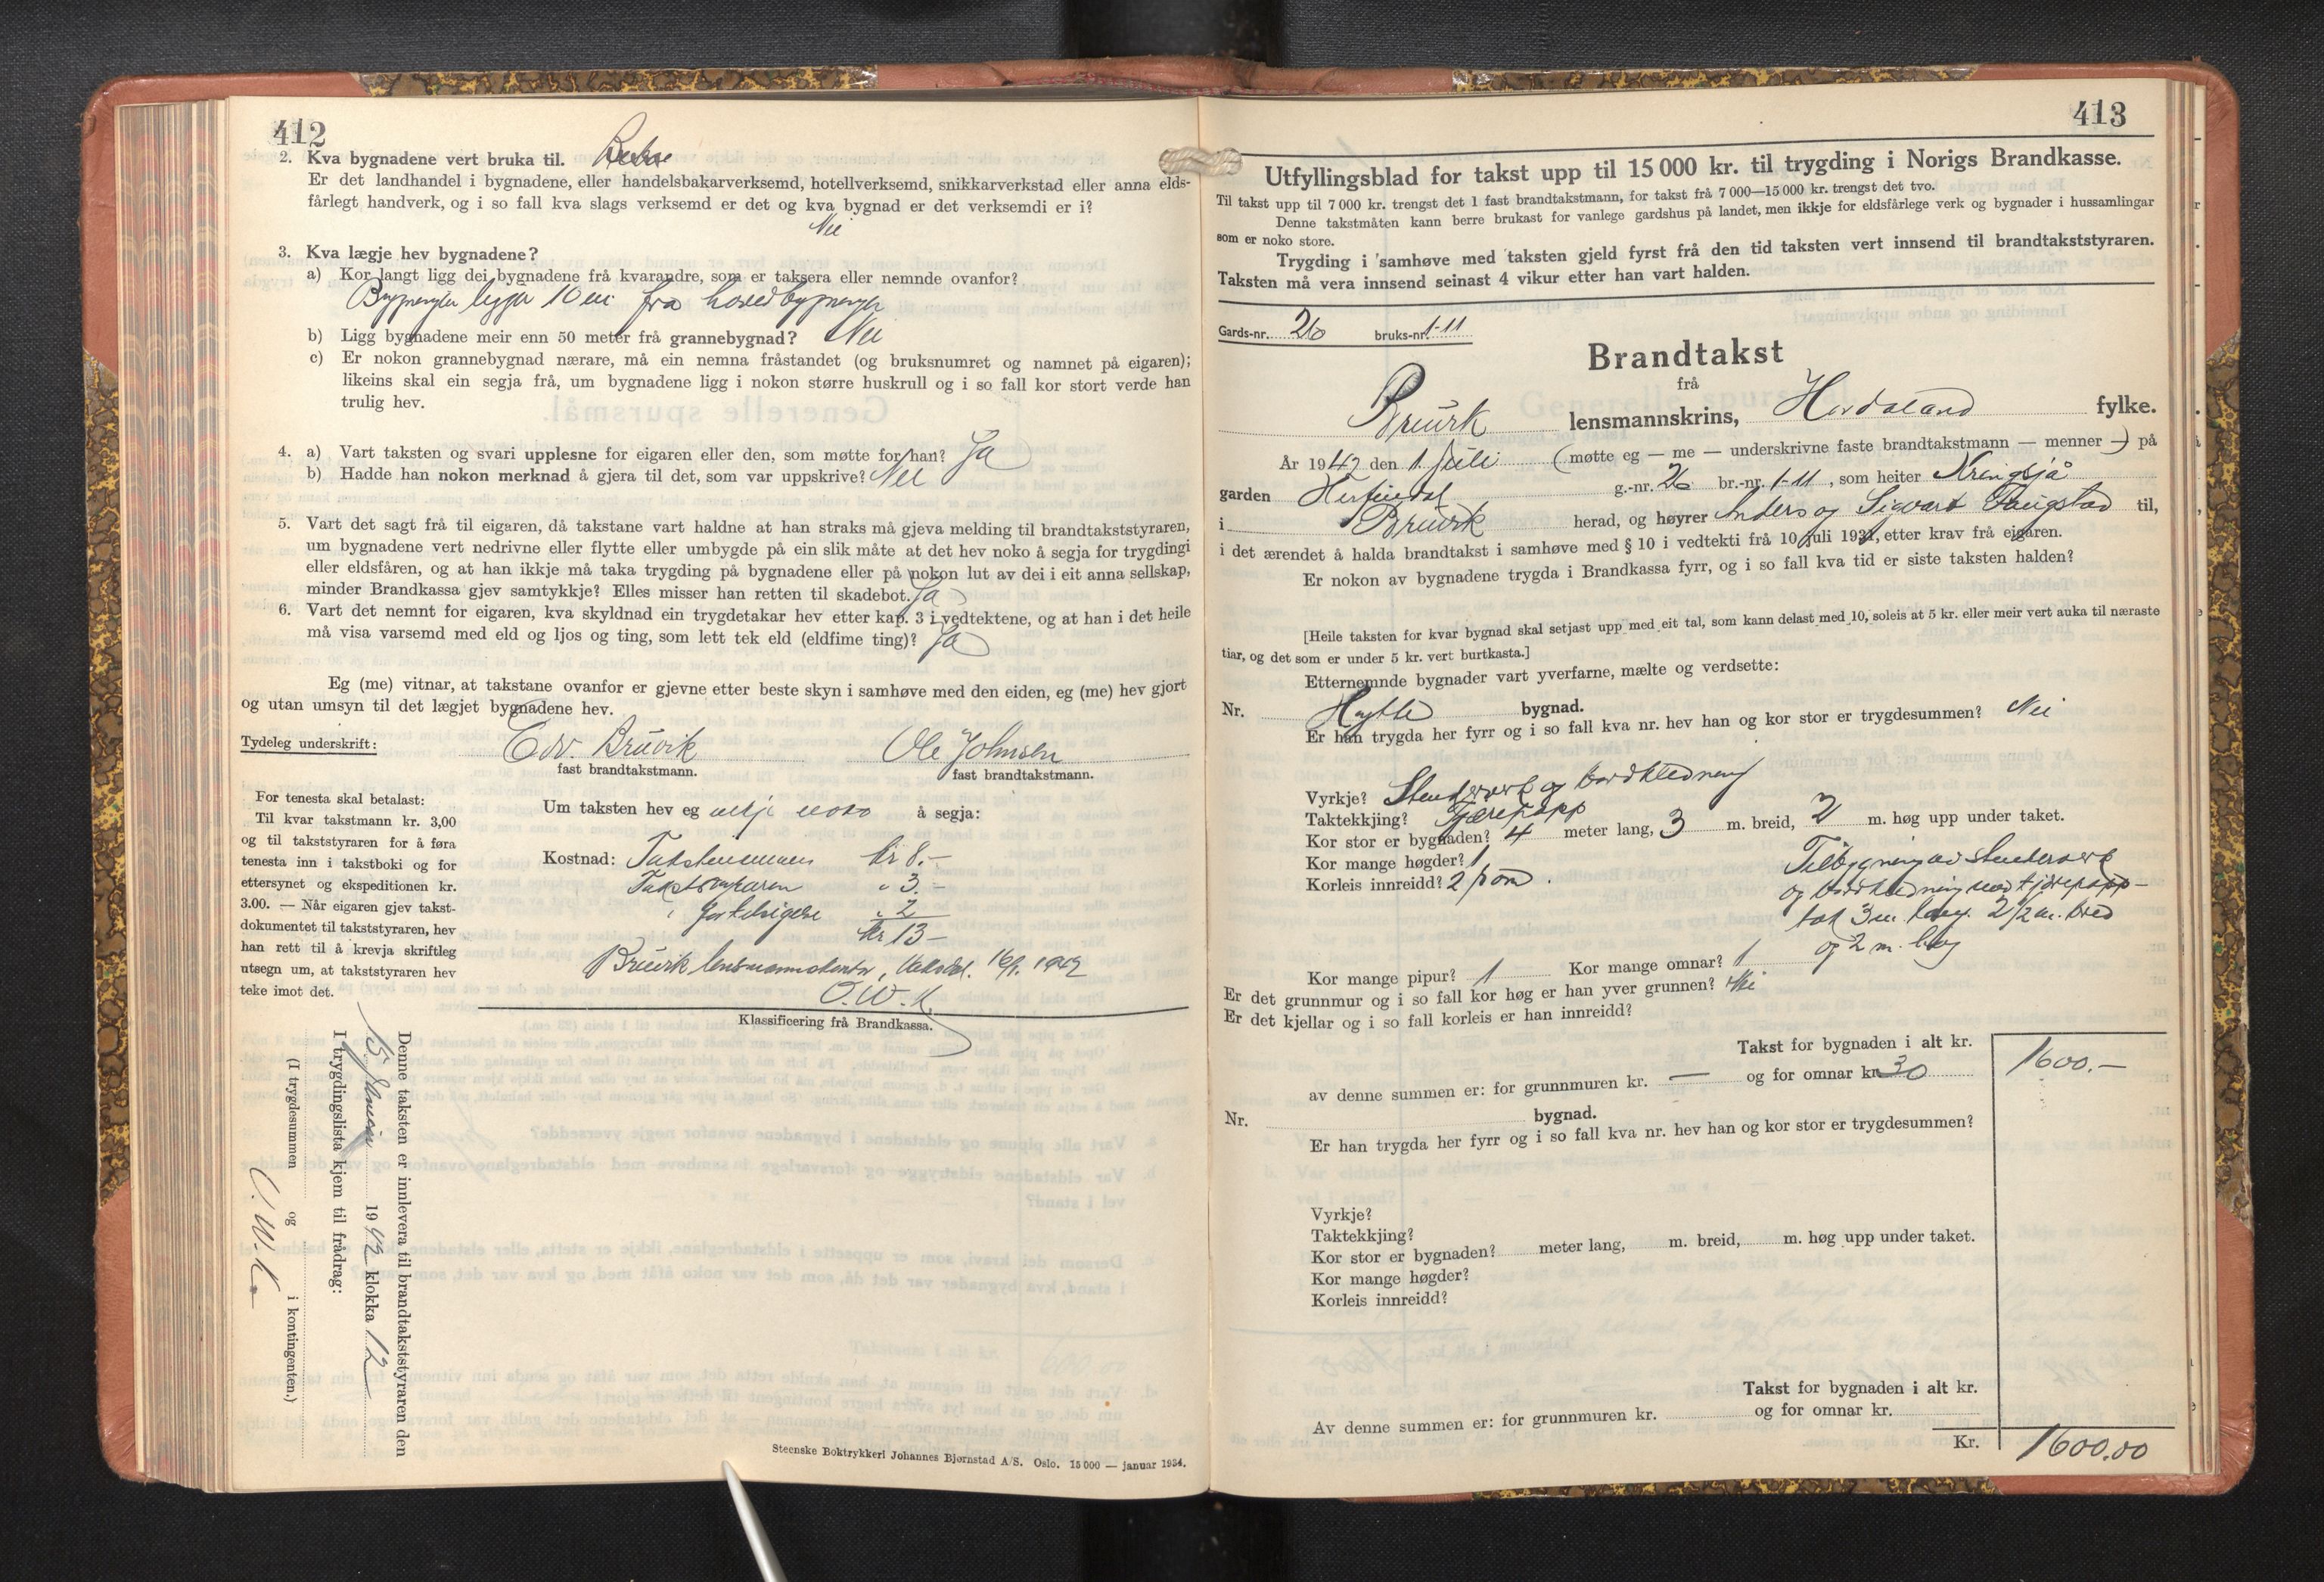 412
2. Kva bygnadene vert bruka til.
Er det landhandel i bygnadene, eller handelsbakarverksemd, hotellverksemd, snikkarverkstad eller anna elds-
fårlegt handverk, og i so fall kva slags verksemd er det og kva bygnad er det verksemdi er i?
Nei
3. Kva lægje hev bygnadene?
a) Kor langt ligg dei bygnadene frå kvarandre, som er taksera eller nemnde ovanfor?
ligger 10 m fra
b) Ligg bygnadene meir enn 50 meter frå grannebygnad? Nei
c) Er nokon grannebygnad nærare, må ein nemna fråstandet (og bruksnumret og namnet på eigaren);
likeins skal ein segja frå, um bygnadene ligg i nokon større huskrull og i so fall kor stort verde han
trulig hev.
4. a) Vart taksten og svari upplesne for eigaren eller den, som møtte for han? Ja
b) Hadde han nokon merknad å gjera til det, som var uppskrive? Nei
5. Vart det sagt frå til eigaren, då takstane vart haldne at han straks må gjeva melding til brandtakststyraren,
um bygnadene vert nedrivne eller flytte eller umbygde på ein slik måte at det hev noko å segja for trygdingi
eller eldsfåren, og at han ikkje må taka trygding på bygnadene eller på nokon lut av dei i eit anna sellskap,
minder Brandkassa gjev samtykkje? Elles misser han retten til skadebot. Ja
6. Vart det nemnt for eigaren, kva skyldnad ein trygdetakar hev etter kap. 3 i vedtektene, og at han i det heile
må visa varsemd med eld og ljos og ting, som lett tek eld (eldfime ting)? Ja
Eg (me) vitnar, at takstane ovanfor er gjevne etter beste skyn i samhøve med den eiden, eg (me) hev gjort
og utan umsyn til det lægjet bygnadene hev.
Tydeleg underskrift: Edv. Bruvik Ole Johnsen
fast brandtakstmann. fast brandtakstmann.
For tenesta skal betalast:
Til kvar takstmann kr. 3,00
og til takststyraren for å føra
tenesta inn i takstboki og for
ettersynet og ekspeditionen kr.
3.00. — Når eigaren gjev takst-
dokumentet til takststyraren, hev
han rett til å krevja skriftleg
utsegn um, at takststyraren hev
teke imot det.
Um taksten hev eg ikkje noko å segja:
Kostnad: Takstmennene kr 8.-
Takststyraren " 3.-
" 2
kr 13-
Bruvik lensmannskontor, 1942
O.W.K
Klassificering frå Brandkassa.
Denne taksten er innlevera til brandtakststyraren den
15 1942 klokka 12
I trygdingslista kjem til frådrag:
(I trygdesummen og i kontingenten.)
O.W.K
Steenske Boktrykkeri Johannes Bjørnstad A/S. Oslo. 15 000 — januar 1934.
413
Utfyllingsblad for takst upp til 15 000 kr. til trygding i Norigs Brandkasse.
Til takst upp til 7 000 kr. trengst det 1 fast brandtakstmann, for takst frå 7 000—15 000 kr. trengst det tvo.
Denne takstmåten kann berre brukast for vanlege gardshus på landet, men ikkje for eldsfårlege verk og bygnader i hussamlingar
som er noko store.
Trygding i samhøve med taksten gjeld fyrst frå den tid taksten vert innsend til brandtakststyraren.
Taksten må vera innsend seinast 4 vikur etter han vart halden.
Gards-nr. 26 bruks-nr. 1-11
Brandtakst
frå
Bruvik lensmannskrins, Hordaland fylke.
År 1942 den 1 Juli (møtte eg — me — underskrivne faste brandtakstmann — menner —) på
garden Herfindal g.-nr. 26 br.-nr. 1-11, som heiter Kringsjå
i Bruvik herad, og høyrer Anders og Sigvart Langstad til,
i det ærendet å halda brandtakst i samhøve med § 10 i vedtekti frå 10 juli 1931, etter krav frå eigaren.
Er nokon av bygnadene trygda i Brandkassa fyrr, og i so fall kva tid er siste taksten halden?
[Heile taksten for kvar bygnad skal setjast upp med eit tal, som kann delast med 10, soleis at 5 kr. eller meir vert auka til næraste
tiar, og det som er under 5 kr. vert burtkasta.]
Etternemnde bygnader vart yverfarne, mælte og verdsette:
Nr. Hytte bygnad.
Er han trygda her fyrr og i so fall kva nr. hev han og kor stor er trygdesummen? Nei
Vyrkje? Stenderverk og bordkledning
Taktekkjing? Tjærepapp
Kor stor er bygnaden? 4 meter lang, 3 m. breid, 2 m. høg upp under taket.
Kor mange høgder? 1
Korleis innreidd? 2 rom.
Tilbygning av stenderverk
og bordkledning med tjærepapp-
tak 3 m. lang. 2 1/2 m. bred
og 2 m. høg
Kor mange pipur? 1 Kor mange omnar? 1
Er det grunnmur og i so fall kor høg er han yver grunnen? Nei
Er det kjellar og i so fall korleis er han innreidd?
Takst for bygnaden i alt kr. 1600.—
av denne summen er: for grunnmuren kr. — og for omnar kr. 30
Nr. bygnad.
Er han trygda her fyrr og i so fall kva nr. hev han og kor stor er trygdesummen?
Vyrkje?
Taktekkjing?
Kor stor er bygnaden? meter lang, m. breid, m. høg upp under taket.
Kor mange høgder?
Korleis innreidd?
Takst for bygnaden i alt kr.
Av denne summen er: for grunnmuren kr. og for omnar kr.
Kr. 1600.00